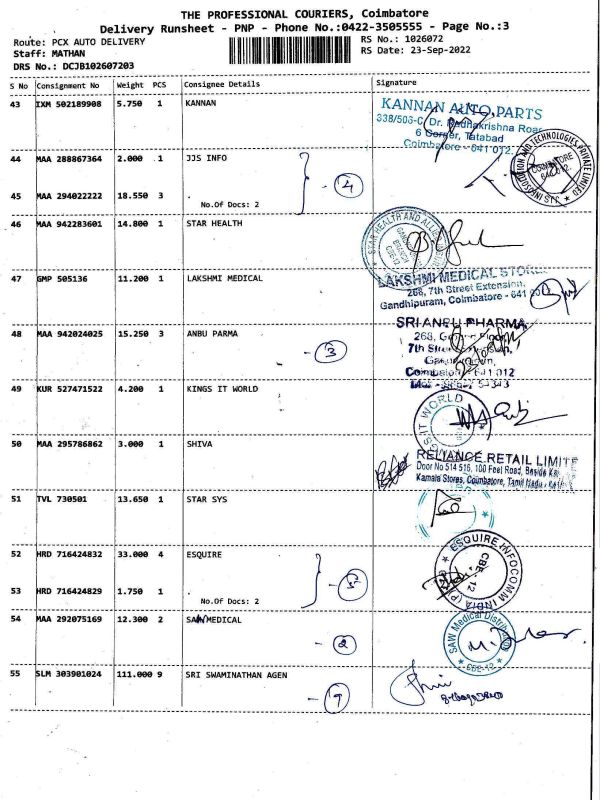 THE PROFESSIONAL COURIERS, Coimbatore
Delivery Runsheet - PNP - Phone No.:0422-3505555 - Page No.:3
Route: PCX AUTO DELIVERY
RS No.: 1026072
Staff: MATHAN
RS Date: 23-Sep-2022
DRS No.: DCJB102607203
S No Consignment No Weight PCS Consignee Details Signature
43 IXM 502189908 5.750 1 KANNAN
KANNAN AUTO PARTS
338/506-C, Dr. Radhakrishna Road
6 Corner, Tatabad
Coimbatore - 641 012.
44 MAA 288867364 2.000 1 JJS INFO
4
45 MAA 294022222 18.550 3
No.Of Docs: 2
COIMBATORE
641 012.
46 MAA 942283601 14.800 1 STAR HEALTH
STAR HEALTH AND ALLIED
BRANCH
47 GMP 505136 11.200 1 LAKSHMI MEDICAL
LAKSHMI MEDICAL STORE
268, 7th Street Extension,
Gandhipuram, Coimbatore - 641 012
48 MAA 942024025 15.250 3 ANBU PARMA
- 3
SRI ANBU PHARMA
268,
7th
49 KUR 527471522 4.200 1 KINGS IT WORLD
GS IT WORLD
50 MAA 295786862 3.000 1 SHIVA
RELIANCE RETAIL LIMITE
Door No 514 516, 100 Feet Road, Beside
Kamala Stores, Coimbatore, Tamil Nadu
51 TVL 730501 13.650 1 STAR SYS
52 HRD 716424832 33.000 4 ESQUIRE
- 5
ESQUIRE INFOCOM INDIA (P)
CBE - 12
53 HRD 716424829 1.750 1
No.Of Docs: 2
54 MAA 292075169 12.300 2 SAW MEDICAL
- 2
SAW Medical Distrib
CBE-12
55 SLM 303901024 111.000 9 SRI SWAMINATHAN AGEN
- 9